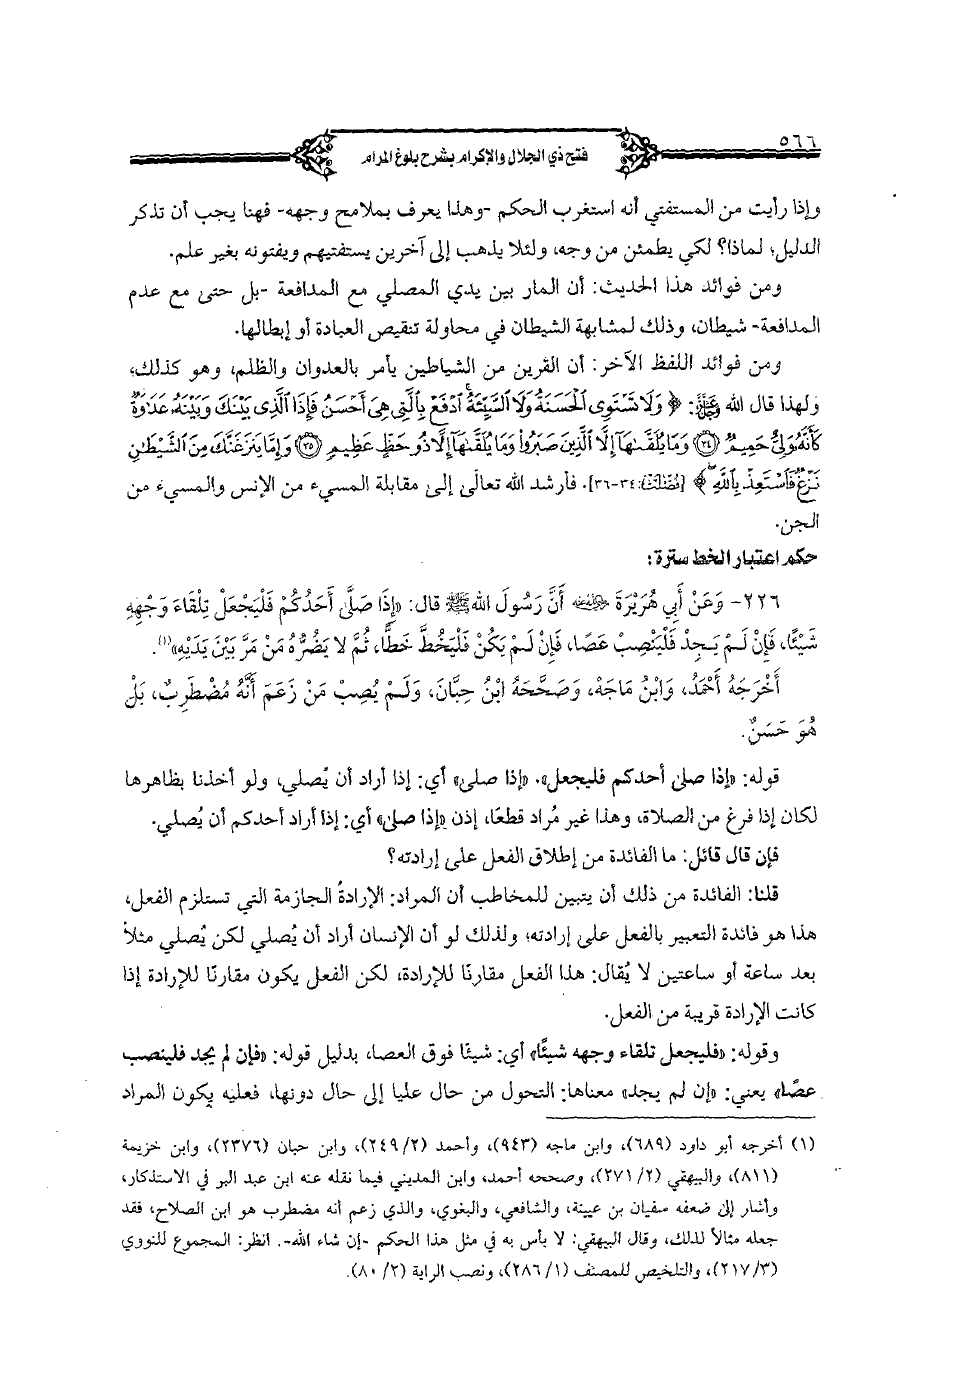 ٥٦٦
فتح ذي الجلال والإكرام بشرح بلوغ المرام
وإذا رأيت من المستفتي أنه استغرب الحكم -وهذا يعرف بملامح وجهه- فهنا يجب أن تذكر
الدليل؛ لماذا؟ لكي يطمئن من وجه، ولئلا يذهب إلى آخرين يستفتيهم ويفتونه بغير علم.
ومن فوائد هذا الحديث: أن المار بين يدي المصلي مع المدافعة -بل حتى مع عدم
المدافعة- شيطان، وذلك لمشابهة الشيطان في محاولة تنقيص العبادة أو إبطالها.
ومن فوائد اللفظ الآخر: أن القرين من الشياطين يأمر بالعدوان والظلم، وهو كذلك؛
ولهذا قال الله ﷿: ﴿وَلَا تَسْتَوِي الْحَسَنَةُ وَلَا السَّيِّئَةُ ادْفَعْ بِالَّتِي هِيَ أَحْسَنُ فَإِذَا الَّذِي بَيْنَكَ وَبَيْنَهُ عَدَاوَةٌ
كَأَنَّهُ وَلِيٌّ حَمِيمٌ ﴿٣٤﴾ وَمَا يُلَقَّاهَا إِلَّا الَّذِينَ صَبَرُوا وَمَا يُلَقَّاهَا إِلَّا ذُو حَظٍّ عَظِيمٍ ﴿٣٥﴾ وَإِمَّا يَنزَغَنَّكَ مِنَ الشَّيْطَانِ
نَزْغٌ فَاسْتَعِذْ بِاللَّهِ﴾ [فصلت: ٣٤-٣٦]. فأرشد الله تعالى إلى مقابلة المسيء من الإنس والمسيء من
الجن.
حكم اعتبار الخط سترة:
٢٢٦- وَعَنْ أَبِي هُرَيْرَةَ ﵁ أَنَّ رَسُولَ اللهِ ﷺ قال: «إِذَا صَلَّى أَحَدُكُمْ فَلْيَجْعَلْ تِلْقَاءَ وَجْهِهِ
شَيْئًا، فَإِنْ لَمْ يَجِدْ فَلْيَنْصِبْ عَصًا، فَإِنْ لَمْ يَكُنْ فَلْيَخُطَّ خَطًّا، ثُمَّ لا يَضُرُّهُ مَنْ مَرَّ بَيْنَ يَدَيْهِ»(١).
أَخْرَجَهُ أَحْمَدُ، وَابْنُ مَاجَهْ، وَصَحَّحَهُ ابْنُ حِبَّانَ، وَلَمْ يُصِبْ مَنْ زَعَمَ أَنَّهُ مُضْطَرِبٌ، بَلْ
هُوَ حَسَنٌ.
قوله: «إذا صلى أحدكم فليجعل». «إذا صلى» أي: إذا أراد أن يُصلي، ولو أخذنا بظاهرها
لكان إذا فرغ من الصلاة، وهذا غير مُراد قطعًا، إذن «إذا صلى» أي: إذا أراد أحدكم أن يُصلي.
فإن قال قائل: ما الفائدة من إطلاق الفعل على إرادته؟
قلنا: الفائدة من ذلك أن يتبين للمخاطب أن المراد: الإرادةُ الجازمة التي تستلزم الفعل،
هذا هو فائدة التعبير بالفعل على إرادته؛ ولذلك لو أن الإنسان أراد أن يُصلي لكن يُصلي مثلاً
بعد ساعة أو ساعتين لا يُقال: هذا الفعل مقارنًا للإرادة، لكن الفعل يكون مقارنًا للإرادة إذا
كانت الإرادة قريبة من الفعل.
وقوله: «فليجعل تلقاء وجهه شيئًا» أي: شيئًا فوق العصا، بدليل قوله: «فإن لم يجد فلينصب
عصًا» يعني: «إن لم يجد» معناها: التحول من حال عليا إلى حال دونها، فعليه يكون المراد
(١) أخرجه أبو داود (٦٨٩)، وابن ماجه (٩٤٣)، وأحمد (٢/٢٤٩)، وابن حبان (٢٣٧٦)، وابن خزيمة
(٨١١)، والبيهقي (٢/٢٧١)، وصححه أحمد، وابن المديني فيما نقله عنه ابن عبد البر في الاستذكار،
وأشار إلى ضعفه سفيان بن عيينة، والشافعي، والبغوي، والذي زعم أنه مضطرب هو ابن الصلاح، فقد
جعله مثالاً لذلك، وقال البيهقي: لا بأس به في مثل هذا الحكم -إن شاء الله-. انظر: المجموع للنووي
(٣/٢١٧)، والتلخيص للمصنف (١/٢٨٦)، ونصب الراية (٢/٨٠).